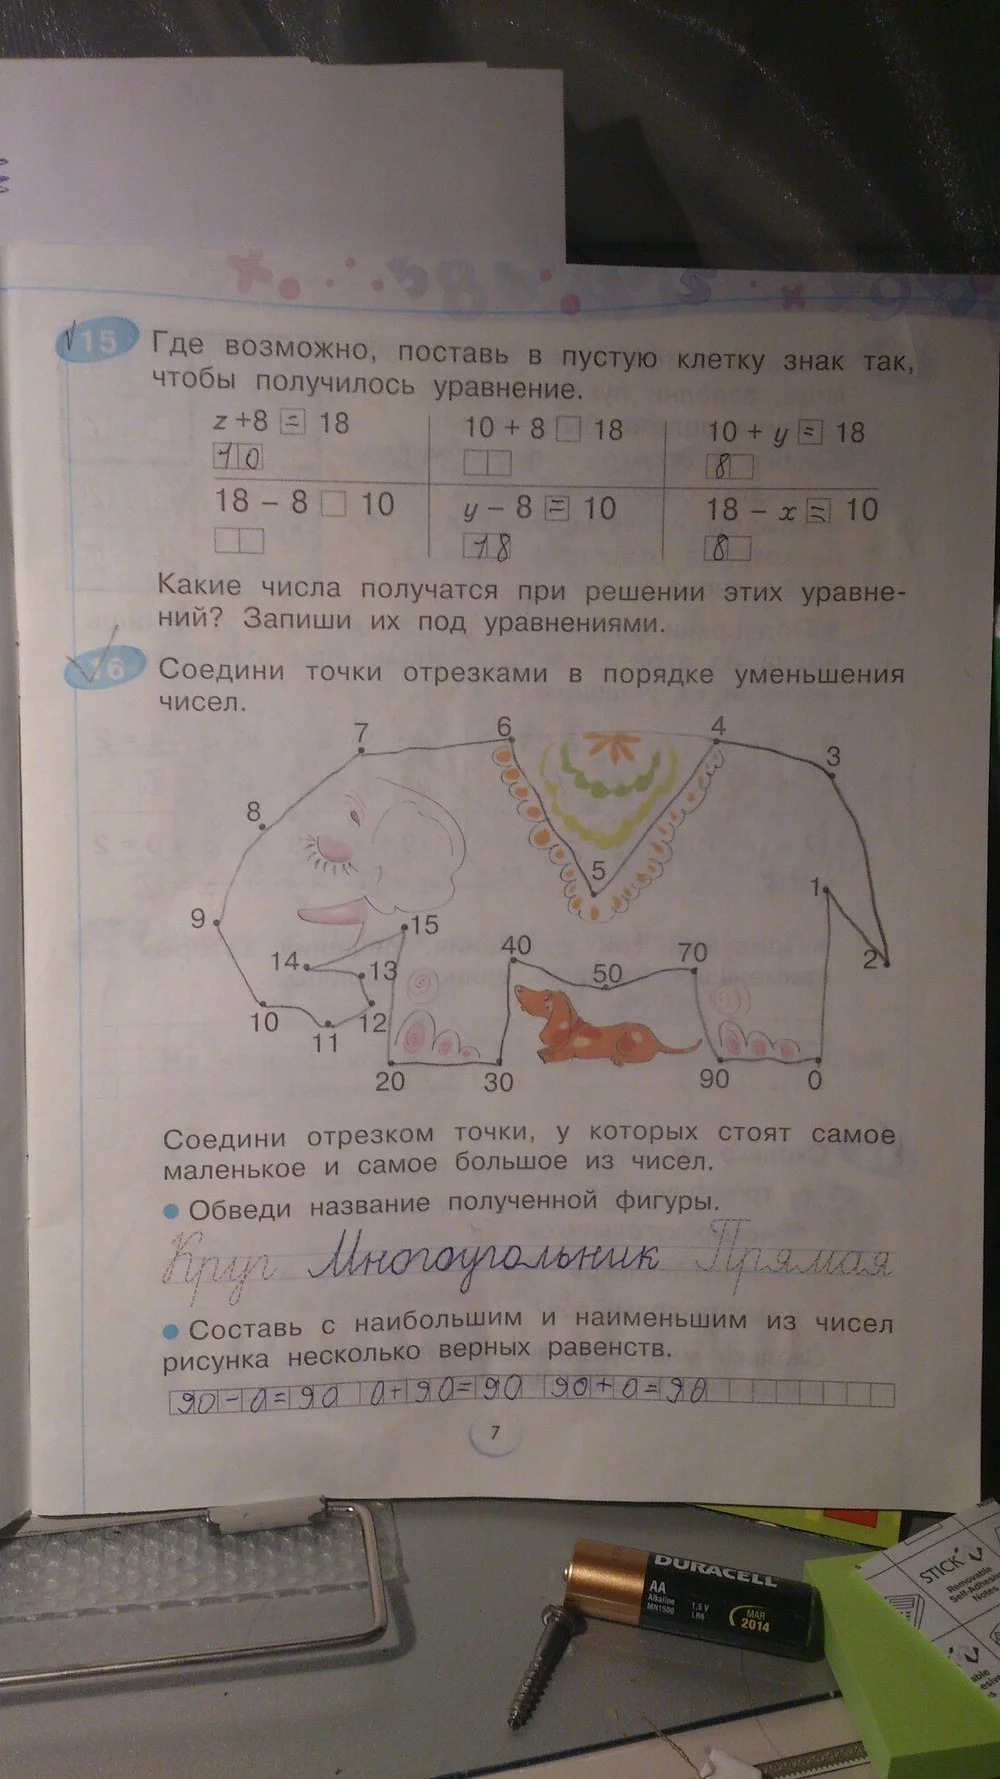 15 Где возможно, поставь в пустую клетку знак так,
чтобы получилось уравнение.
z + 8 = 18 10 + 8 □ 18 10 + y = 18
10 8
18 – 8 □ 10 y – 8 = 10 18 – x = 10
18 8
Какие числа получатся при решении этих уравне-
ний? Запиши их под уравнениями.
16 Соедини точки отрезками в порядке уменьшения
чисел.
7 6 4 3
8
5 1
9 15
14 13 40 50 70 2
10 11 12
20 30 90 0
Соедини отрезком точки, у которых стоят самое
маленькое и самое большое из чисел.
● Обведи название полученной фигуры.
Круг Многоугольник Прямая
● Составь с наибольшим и наименьшим из чисел
рисунка несколько верных равенств.
90–0=90 0+90=90 90+0=90
7
DURACELL
AA
Alkaline
MN1500
1,5 V
LR6
MAR
2014
STICK
Removable
Self-Adhesive
Notes